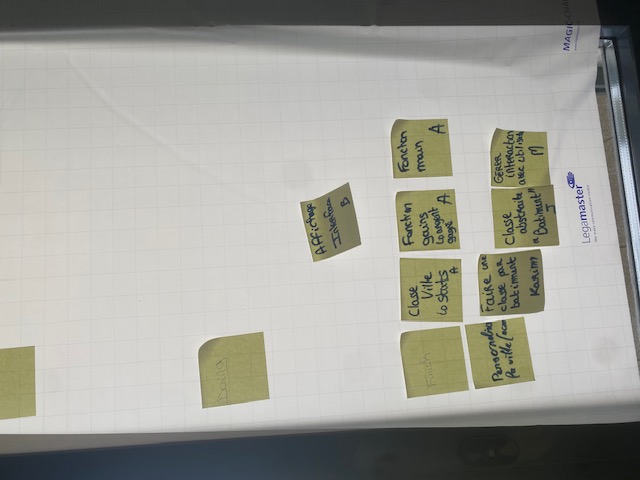 Doing
Affichage
Interface
B
Finish
Classe
Ville
↳ stats
A
Fonction
gains
↳ argent
gagné
A
Fonction
main
A
la ville
Faire une
classe par
batiment
Karim
Classe
abstraite
"Batiment"
J
GERER
interaction
avec utilisate
M
Legamaster
MAGIC-CHA